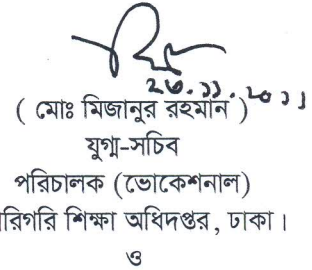 ২৩.১১.২০১১
( মোঃ মিজানুর রহমান )
যুগ্ম-সচিব
পরিচালক (ভোকেশনাল)
রিগরি শিক্ষা অধিদপ্তর, ঢাকা।
ও